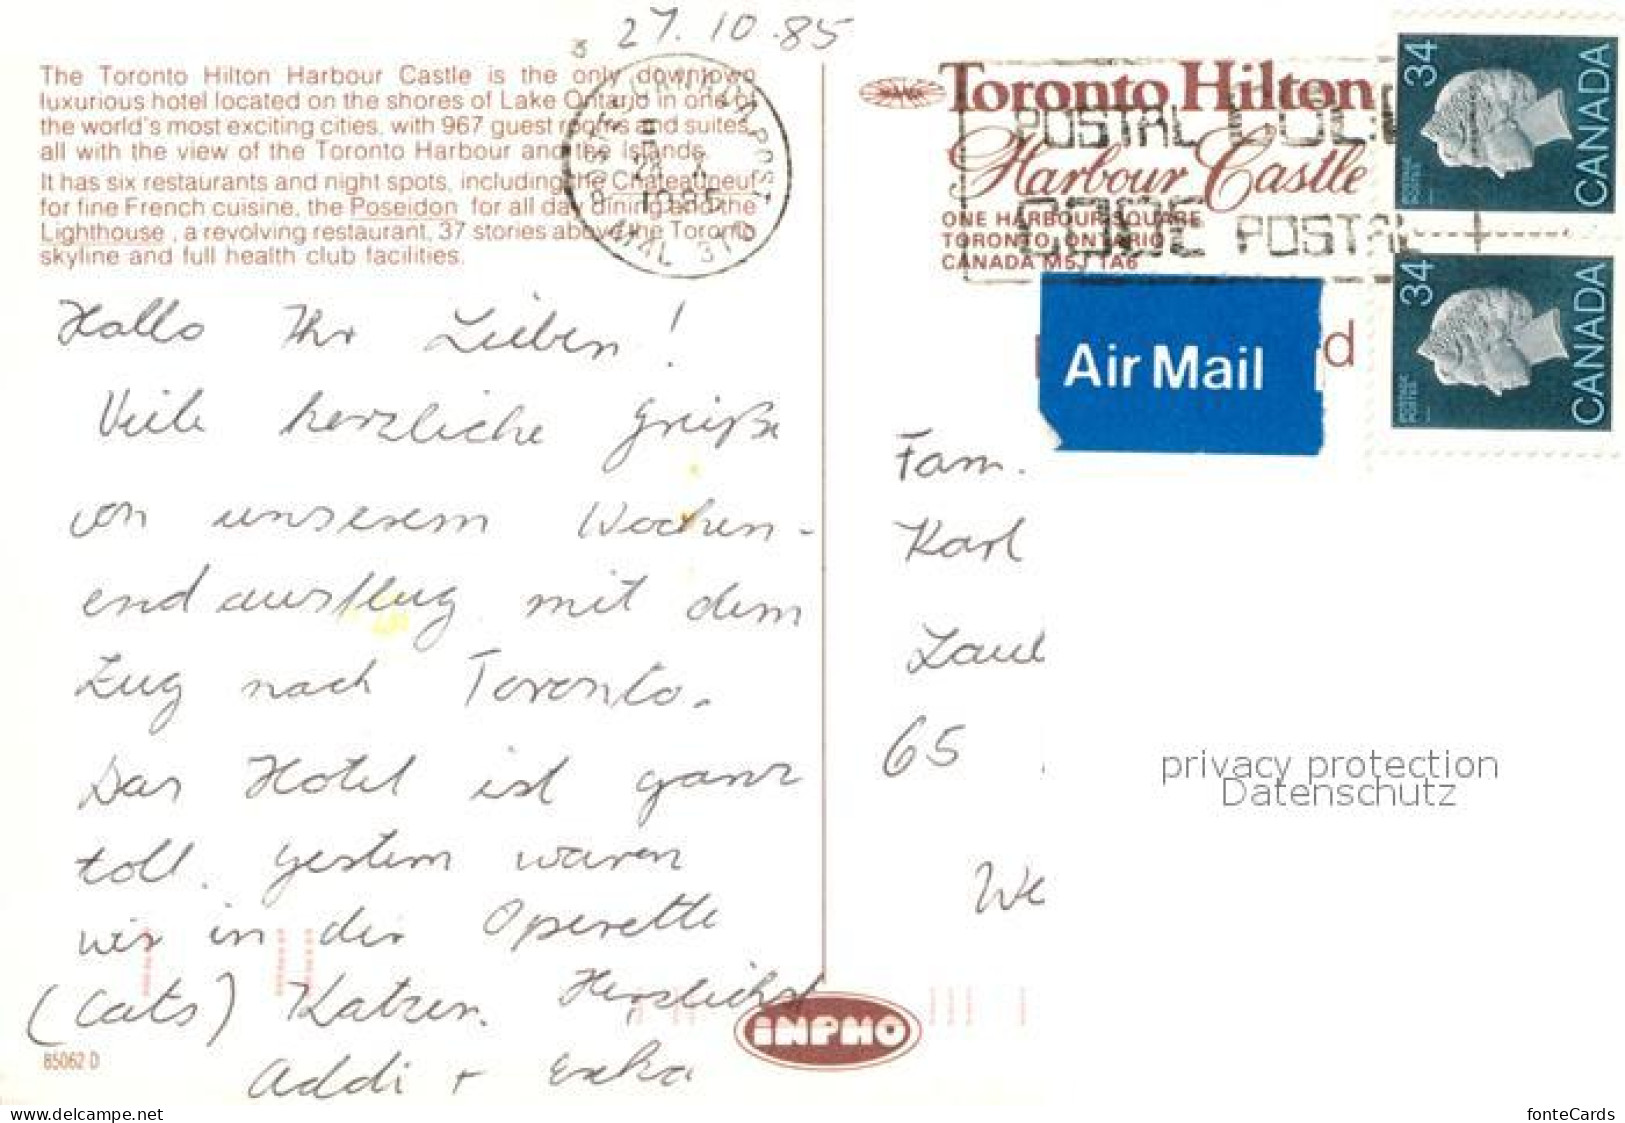 27.10.85
The Toronto Hilton Harbour Castle is the only downtown
luxurious hotel located on the shores of Lake Ontario in one of
the world's most exciting cities, with 967 guest rooms and suites,
all with the view of the Toronto Harbour and the Islands.
It has six restaurants and night spots, including the Chateauneuf
for fine French cuisine, the Poseidon for all day dining and the
Lighthouse, a revolving restaurant, 37 stories above the Toronto
skyline and full health club facilities.
CANADA POST
1985
Hallo Ihr Lieben!
Viele herzliche Grüße
von unserem Wochen-
endausflug mit dem
Zug nach Toronto.
Das Hotel ist ganz
toll. Gestern waren
wir in der Operette
(Cats) Katzen. Herzlichst
Addi + Erika
85062 D
INPHO
Toronto Hilton
Harbour Castle
ONE HARBOUR SQUARE
TORONTO, ONTARIO
CANADA M5J 1A6
POSTAL CODE
CODE POSTAL
34 CANADA
POSTAGE
POSTES
34 CANADA
POSTAGE
POSTES
Air Mail
d
Fam.
Karl
65
We
privacy protection
Datenschutz
www.delcampe.net
fonteCards